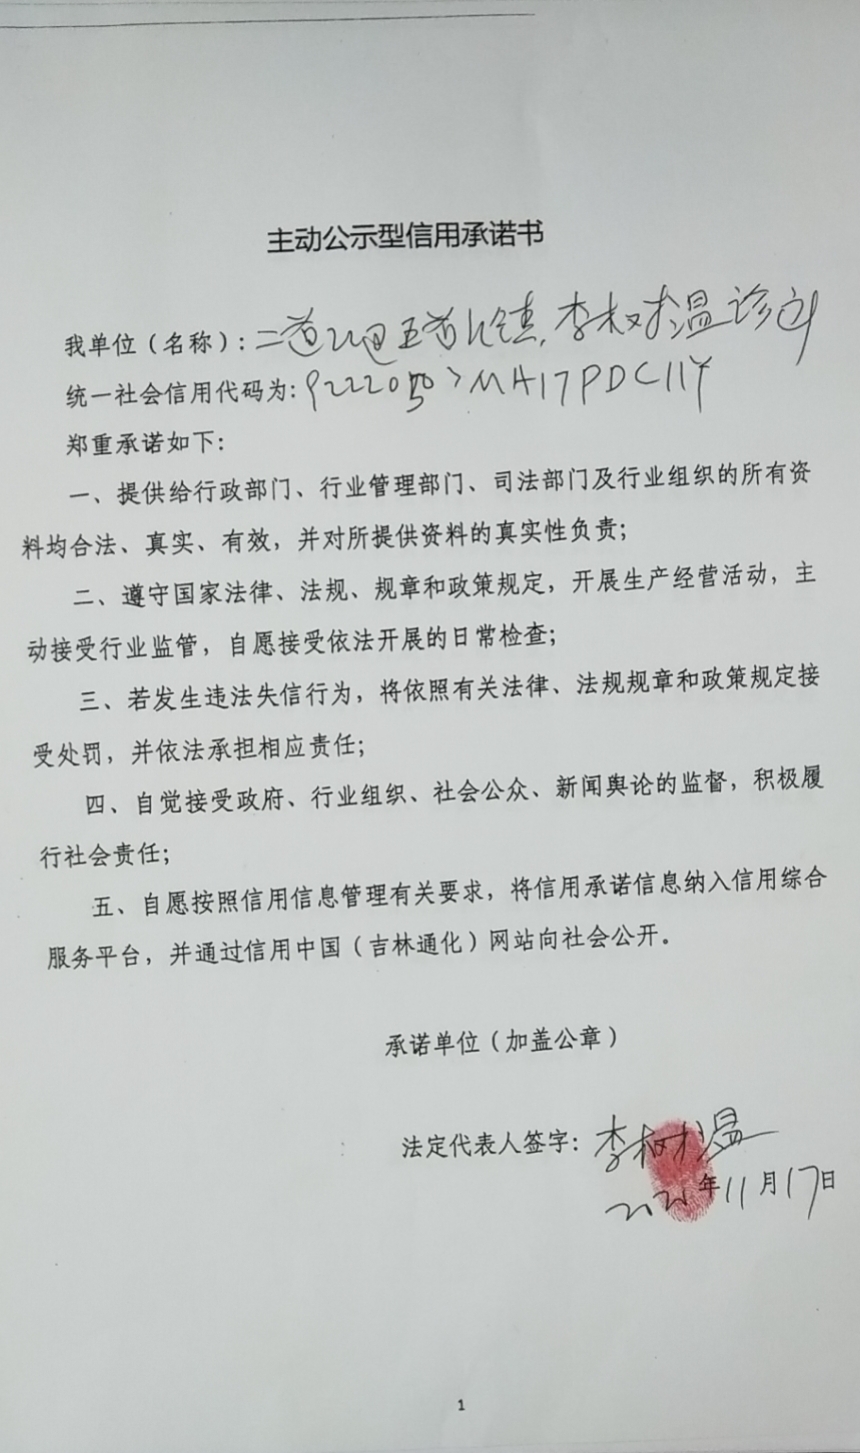 主动公示型信用承诺书
我单位(名称):二道江区五道江镇,李树温诊所
统一社会信用代码为:
郑重承诺如下:
一、提供给行政部门、行业管理部门、司法部门及行业组织的所有资
料均合法、真实、有效,并对所提供资料的真实性负责;
二、遵守国家法律、法规、规章和政策规定,开展生产经营活动,主
动接受行业监管,自愿接受依法开展的日常检查;
三、若发生违法失信行为,将依照有关法律、法规规章和政策规定接
受处罚,并依法承担相应责任;
四、自觉接受政府、行业组织、社会公众、新闻舆论的监督,积极履
行社会责任;
五、自愿按照信用信息管理有关要求,将信用承诺信息纳入信用综合
服务平台,并通过信用中国(吉林通化)网站向社会公开。
承诺单位(加盖公章)
法定代表人签字:李树温
年11月17日
1